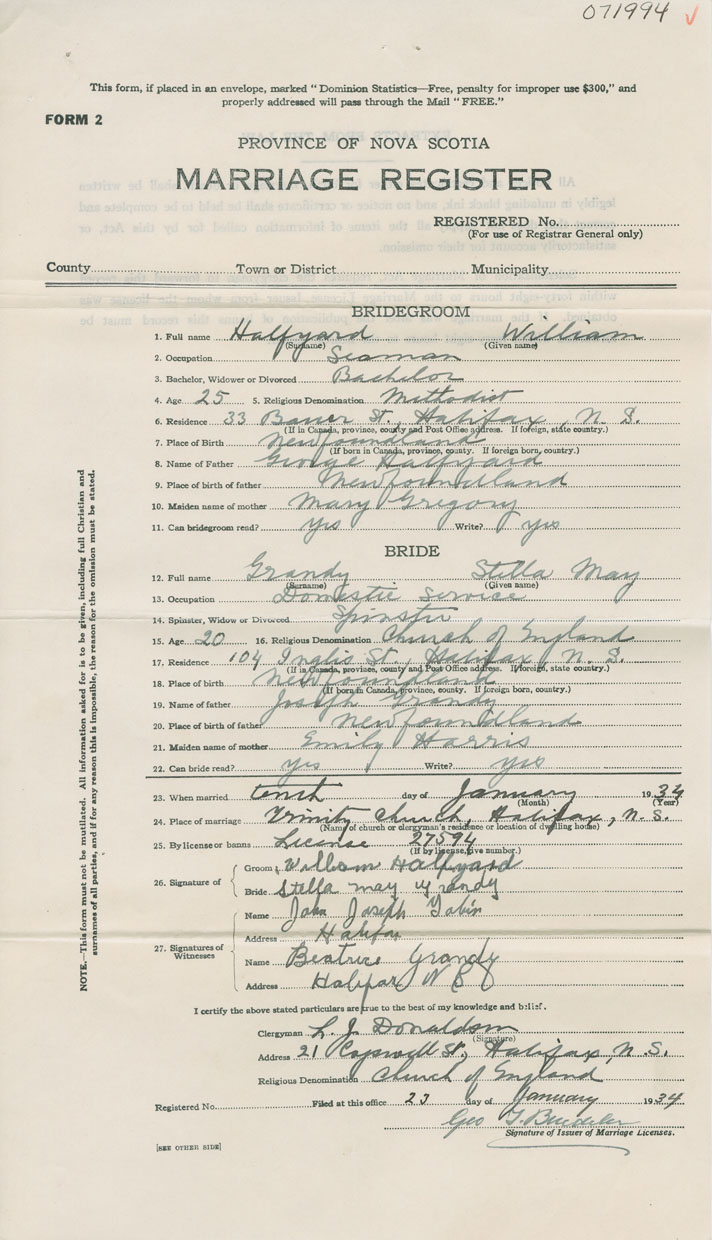 071994 ✓
This form, if placed in an envelope, marked "Dominion Statistics—Free, penalty for improper use $300," and
properly addressed will pass through the Mail "FREE."
FORM 2
PROVINCE OF NOVA SCOTIA
MARRIAGE REGISTER
REGISTERED No.
(For use of Registrar General only)
County Town or District Municipality
BRIDEGROOM
1. Full name Halfyard William
(Surname) (Given name)
2. Occupation Seaman
3. Bachelor, Widower or Divorced Bachelor
4. Age 25 5. Religious Denomination Methodist
6. Residence 33 Bauer St., Halifax, N. S.
(If in Canada, province, county and Post Office address. If foreign, state country.)
7. Place of Birth Newfoundland
(If born in Canada, province, county. If foreign born, country.)
8. Name of Father George Halfyard
9. Place of birth of father Newfoundland
10. Maiden name of mother Mary Gregory
11. Can bridegroom read? yes Write? yes
BRIDE
12. Full name Grandy Stella May
(Surname) (Given name)
13. Occupation Domestic Service
14. Spinster, Widow or Divorced Spinster
15. Age 20 16. Religious Denomination Church of England
17. Residence 104 Inglis St., Halifax, N. S.
(If in Canada, province, county and Post Office address. If foreign, state country.)
18. Place of birth Newfoundland
(If born in Canada, province, county. If foreign born, country.)
19. Name of father Joseph Grandy
20. Place of birth of father Newfoundland
21. Maiden name of mother Emily Harris
22. Can bride read? yes Write? yes
23. When married tenth day of January 1934
(Month) (Year)
24. Place of marriage Trinity Church, Halifax, N. S.
(Name of church or clergyman's residence or location of dwelling house)
25. By license or banns License 27594
(If by license, give number.)
26. Signature of
Groom William Halfyard
Bride Stella may Grandy
27. Signatures of Witnesses
Name John Joseph Tobin
Address Halifax
Name Beatrice Grandy
Address Halifax N S
I certify the above stated particulars are true to the best of my knowledge and belief.
Clergyman L. J. Donaldson
(Signature)
Address 21 St., Halifax, N. S.
Religious Denomination Church of England
Registered No. Filed at this office 23 day of January 1934
Geo
Signature of Issuer of Marriage Licenses.
[SEE OTHER SIDE]
NOTE.—This form must not be mutilated. All information asked for is to be given, including full Christian and
surnames of all parties, and if for any reason this is impossible, the reason for the omission must be stated.